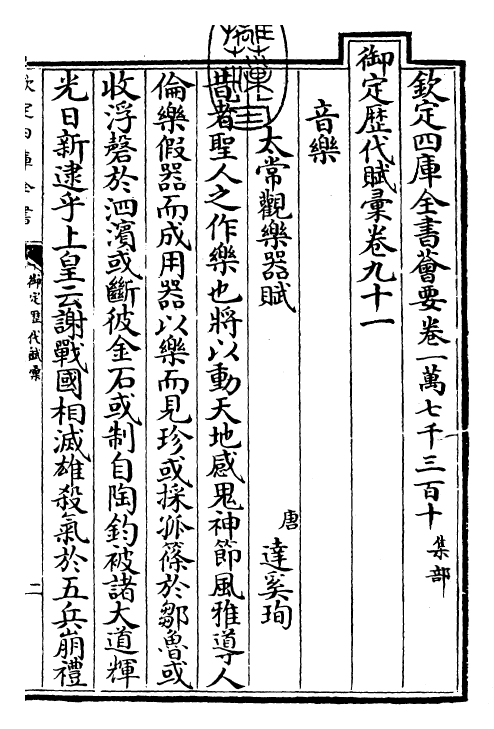 欽定四庫全書薈要卷一萬七千三百十 集部
御定歷代賦彙卷九十一
音樂
太常觀樂器賦 唐 達奚珣
昔者聖人之作樂也將以動天地感鬼神節風雅導人
倫樂假器而成用器以樂而見珍或採孤篠於鄒魯或
收浮磬於泗濱或斷彼金石或制自陶鈞被諸大道輝
光日新逮乎上皇云謝戰國相滅雄殺氣於五兵崩禮
欽定四庫全書
御定歷代賦彙